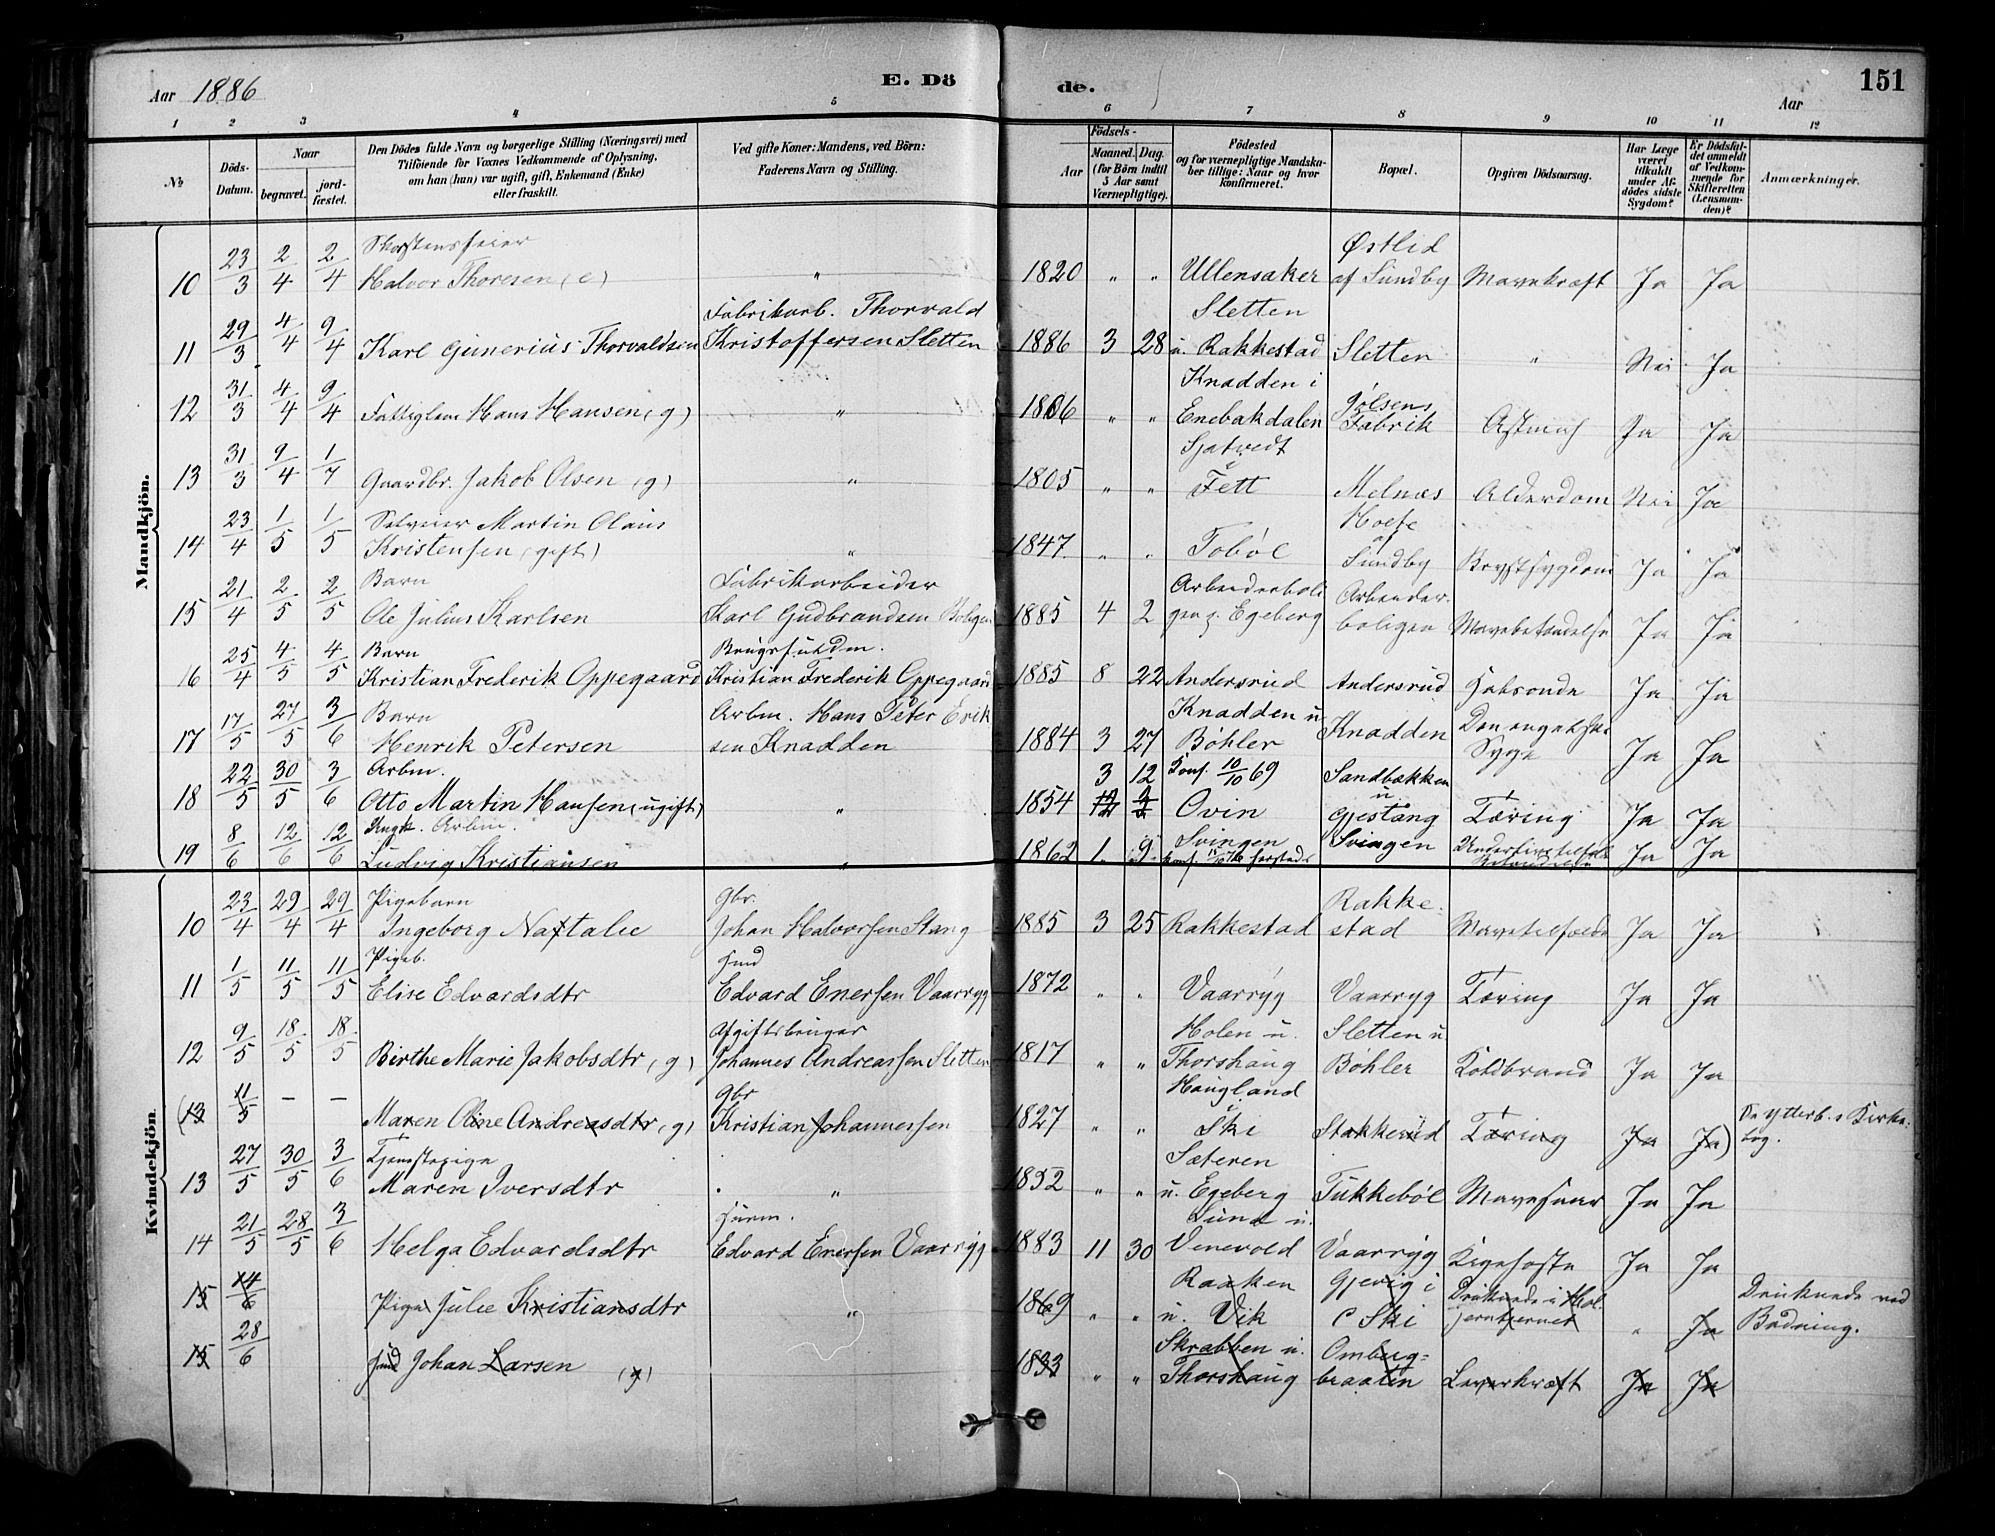 Aar 1886
E. Dö
de.
Aar
151
1 2 3 4 5 6 7 8 9 10 11 12
No
Döds-Datum.
Naar
begravet.
jord-fæstet.
Den Dödes fulde Navn og borgerlige Stilling (Næringsvei) med
Tilföiende for Voxnes Vedkommende af Oplysning,
om han (hun) var ugift, gift, Enkemand (Enke)
eller fraskilt.
Ved gifte Koner: Mandens, ved Börn:
Faderens Navn og Stilling.
Födsels-
Aar
Maaned. Dag.
(for Börn indtil
5 Aar samt
Værnepligtige).
Födested
og for værnepligtige Mandska-
ber tillige: Naar og hvor
konfirmeret.
Bopæl.
Opgiven Dödsaarsag.
Har Læge
været
tilkaldt
under Af-
dödes sidste
Sygdom?
Er Dödsfal-
det anmeldt
af Vedkom-
mende for
Skifteretten
(Lensman-
den)?
Anmærkninger.
Mandkjön.
10 23/3 2/4 2/4 Skorstensfeier
Halvor Thoresen (e) " 1820 " " Ullensaker Østlid af Sundby Mavekræft Ja Ja
11 29/3 4/4 9/4 Karl Gunerius Thorvaldsen Fabrikarb. Thorvald
Kristoffersen Sletten 1886 3 28 Sletten
u. Rakkestad Sletten " Nei Ja
12 31/3 4/4 9/4 Fattiglem Hans Hansen (g) " 1806 " " Knadden i
Enebakdalen Jølsens
Fabrik Astma Ja Ja
13 31/3 9/4 1/7 Gaardbr. Jakob Olsen (g) " 1805 " " Sjatvedt
i Fett Melnæs Alderdom Nei Ja
14 23/4 1/5 1/5 Selveier Martin Olaus
Kristensen (gift) " 1847 " " Tobøl
af
Sundby Brystsygdom Ja Ja
15 21/4 2/5 2/5 Barn
Ole Julius Karlsen Fabrikarbeider
Karl Gudbrandsen Boligen 1885 4 2 Arbeiderboli
gen p. Egeberg Arbeider-
boligen Mavebetændelse Ja Ja
16 25/4 4/5 4/5 Barn
Kristian Frederik Oppegaard
Kristian Frederik Oppegaard 1885 8 22 Andersrud Andersrud Ja Ja
17 17/5 27/5 3/6 Barn
Henrik Petersen Arbm. Hans Peter Erik
sen Knadden 1884 3 27 Knadden u
Bøhler Knadden Den engelske
Syge Ja Ja
18 22/5 30/5 3/6 Arbm.
Otto Martin Hansen (ugift) " 1854 3 12 Konf. 10/10 69
Ovin Sandbækken
u.
Gjestang Tæring Ja Ja
19 8/6 12/6 12/6 Ungk. Arbm.
Ludvig Kristiansen " 1862 1 9 Svingen Svingen Underlivs Ja Ja
Kvindekjön.
10 23/4 29/4 29/4 Pigebarn
Ingeborg Natalie Gbr.
Johan Halvorsen Stang 1885 3 25 Rakkestad Rakke-
stad Mavetilfælde Ja Ja
11 1/5 11/5 11/5 Pigeb.
Elise Edvardsdtr Hmd
Edvard Enersen Vaarryg 1872 " " Vaarryg Vaarryg Tæring Ja Ja
12 9/5 18/5 18/5 Birthe Marie Jakobsdtr (g) Afgiftsbruger
Johannes Andreassen Sletten 1817 " " Holen u.
Thorshaug Sletten u
Bøhler Koldbrand Ja Ja
(13 11/5 – – Maren Oline Andreasdtr (g) Gbr
Kristian Johannessen 1827 " " Haugland
i Ski Stakkerud Tæring Ja Ja) Se Ytterb. s Kirke-
bog.
13 27/5 30/5 3/6 Tjenestepige
Maren Iversdtr " 1852 " " Sæteren
u. Egeberg Tukkebøl Mavesaar Ja Ja
14 21/5 28/5 3/6 Helga Edvardsdtr Husm.
Edvard Enersen Vaarryg 1883 11 30 Lund u.
Venevold Vaarryg Kigehoste Ja Ja
15 14/6 Pige Julie Kristiansdtr " 1869 " " Raaken
u. Vik Gjevig i
Ski Druknede i " Ja Druknede ved
Badning.
15 28/6 Hmd Johan Larsen (g) 1833 " " Skrabben u.
Thorshaug Omberg-
braaten Leverkræft Ja Ja